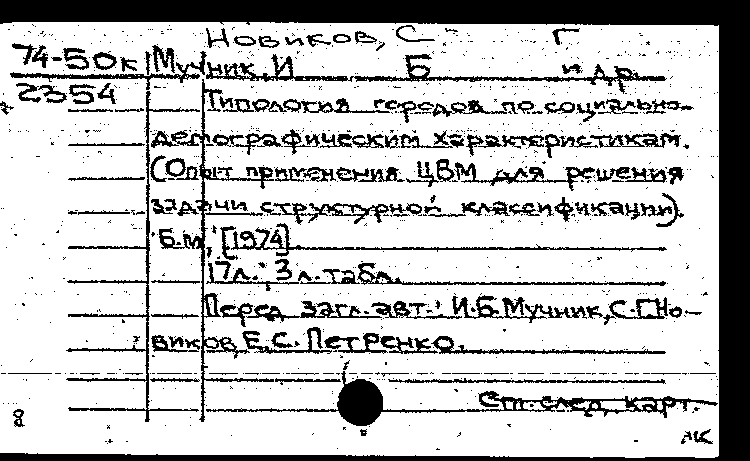 Новиков, С Г
74-50к Мучник, И Б и др.
2354 Типология городов по социально-
демографическим характеристикам.
(Опыт применения ЦВМ для решения
задачи структурной классификации).
Б.м., [1974].
17л.; 3л. табл.
Перед загл. авт.: И.Б. Мучник, С.Г. Но-
виков, Е.С. Петренко.
См. след. карт.
8
МК